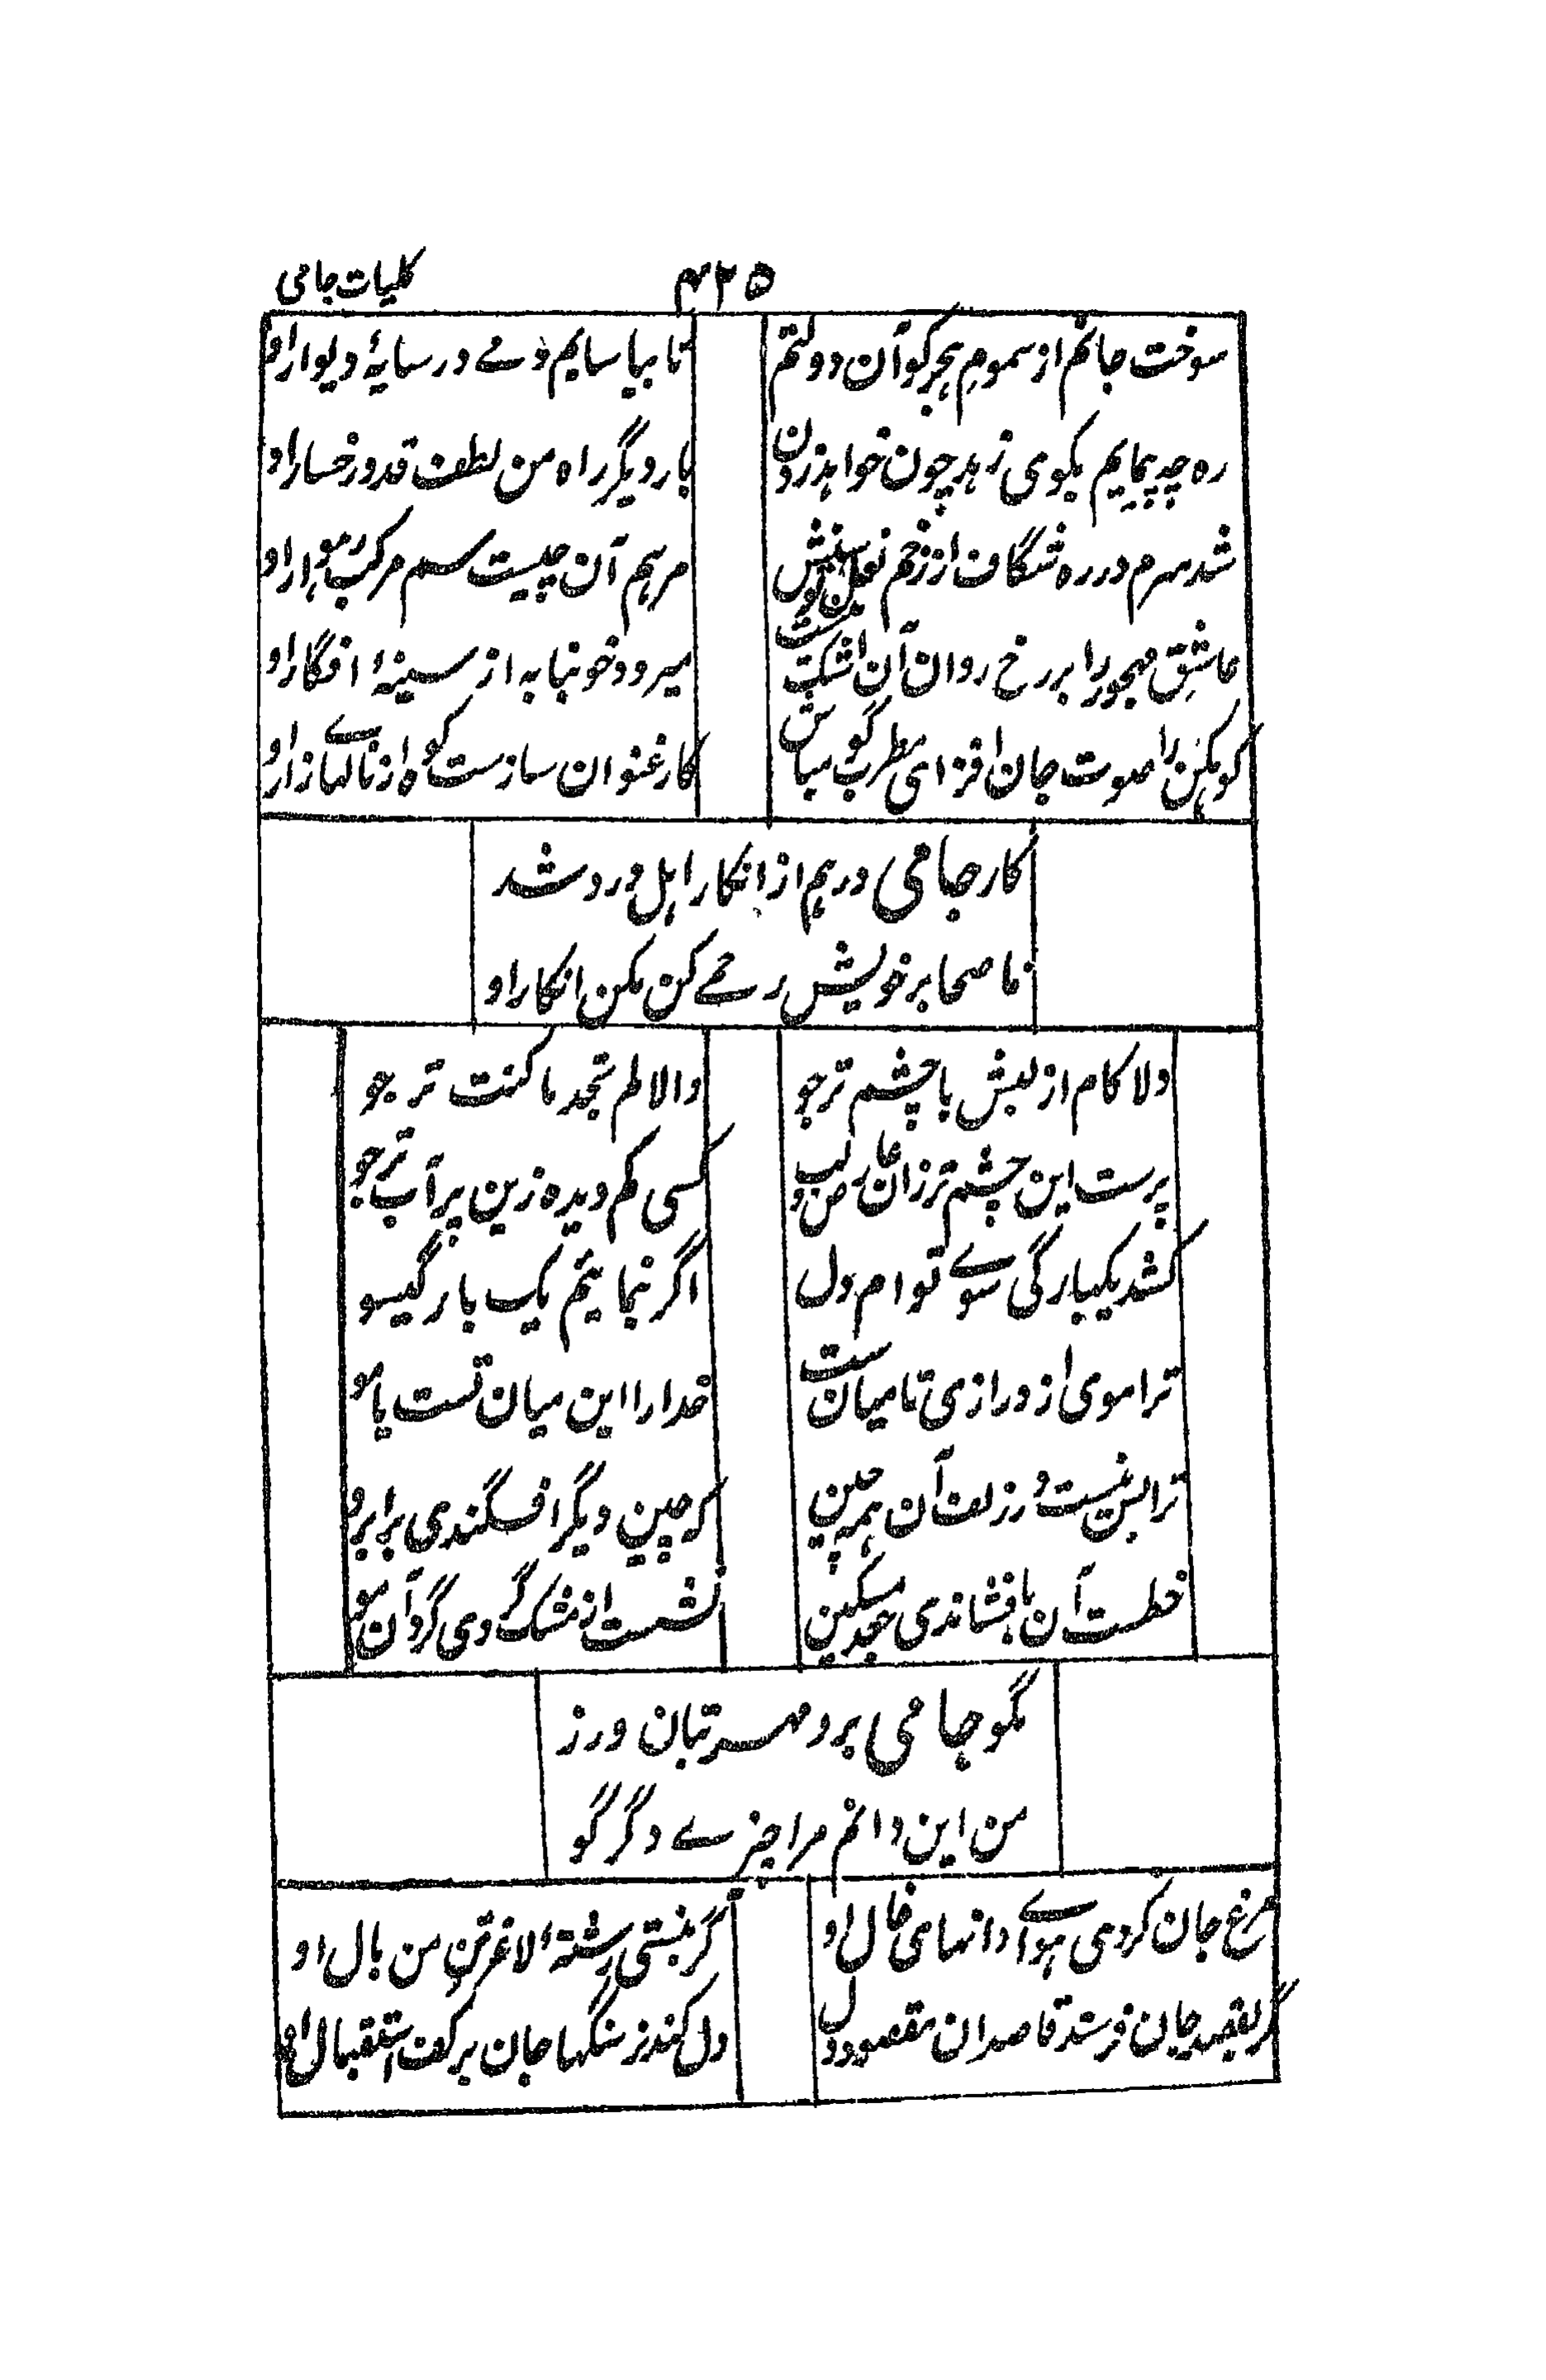 کلیات جامی
۴۲۵
سوخت جانم از سموم ہجر کو آن دولتم
تا بیاسایم دمے در سایۂ دیوار او
ره چه پیمایم بکوی زهد چون خواهد زدن
بار دیگر راه من لطف قد و رخسار او
شد سرم در ره شگاف از زخم نعل توسنش
مرہم آن چیست سم مرکب رہوار او
عاشق مہجور را بر رخ روان آن اشک نیست
میرود خونابه از سینۂ افگار او
کوہکن را صوت جان افزای مطرب گو مباش
کارغنون سازست کوه از نالہاے زار او
کار جامی درہم از انکار اہل درد شد
ناصحا بر خویش رحمے کن مکن انکار او
دلا کام از لبش با چشم تر جو
والا لم تجد ما کنت ترجو
پرست این چشم تر زان عارض و لب
کسی کم دیده زین پر آب تر جو
کشد یکبارگی سوے تو ام دل
اگر نمائیم یک بار گیسو
ترا موی از درازی تا میان ست
خدارا این میان تست یا مو
ترا بس نیست در زلف آن ہمه چین
که چین دیگر افگندی بر ابرو
خطست آن یا فشاندی جعد مسکین
نشست از مشک گردی گرد آن مو
مگو جامی برو مہر بتان ورز
من این دانم مرا چیزے دگر گو
مرغ جان کردی ہواے دانہای خال او
گر نبستی رشتۂ لاغر تن من بال او
گر بقصد جان فرستد قاصدان مقصود دل
دل کند نز سنگہا جان بر کف استقبال او